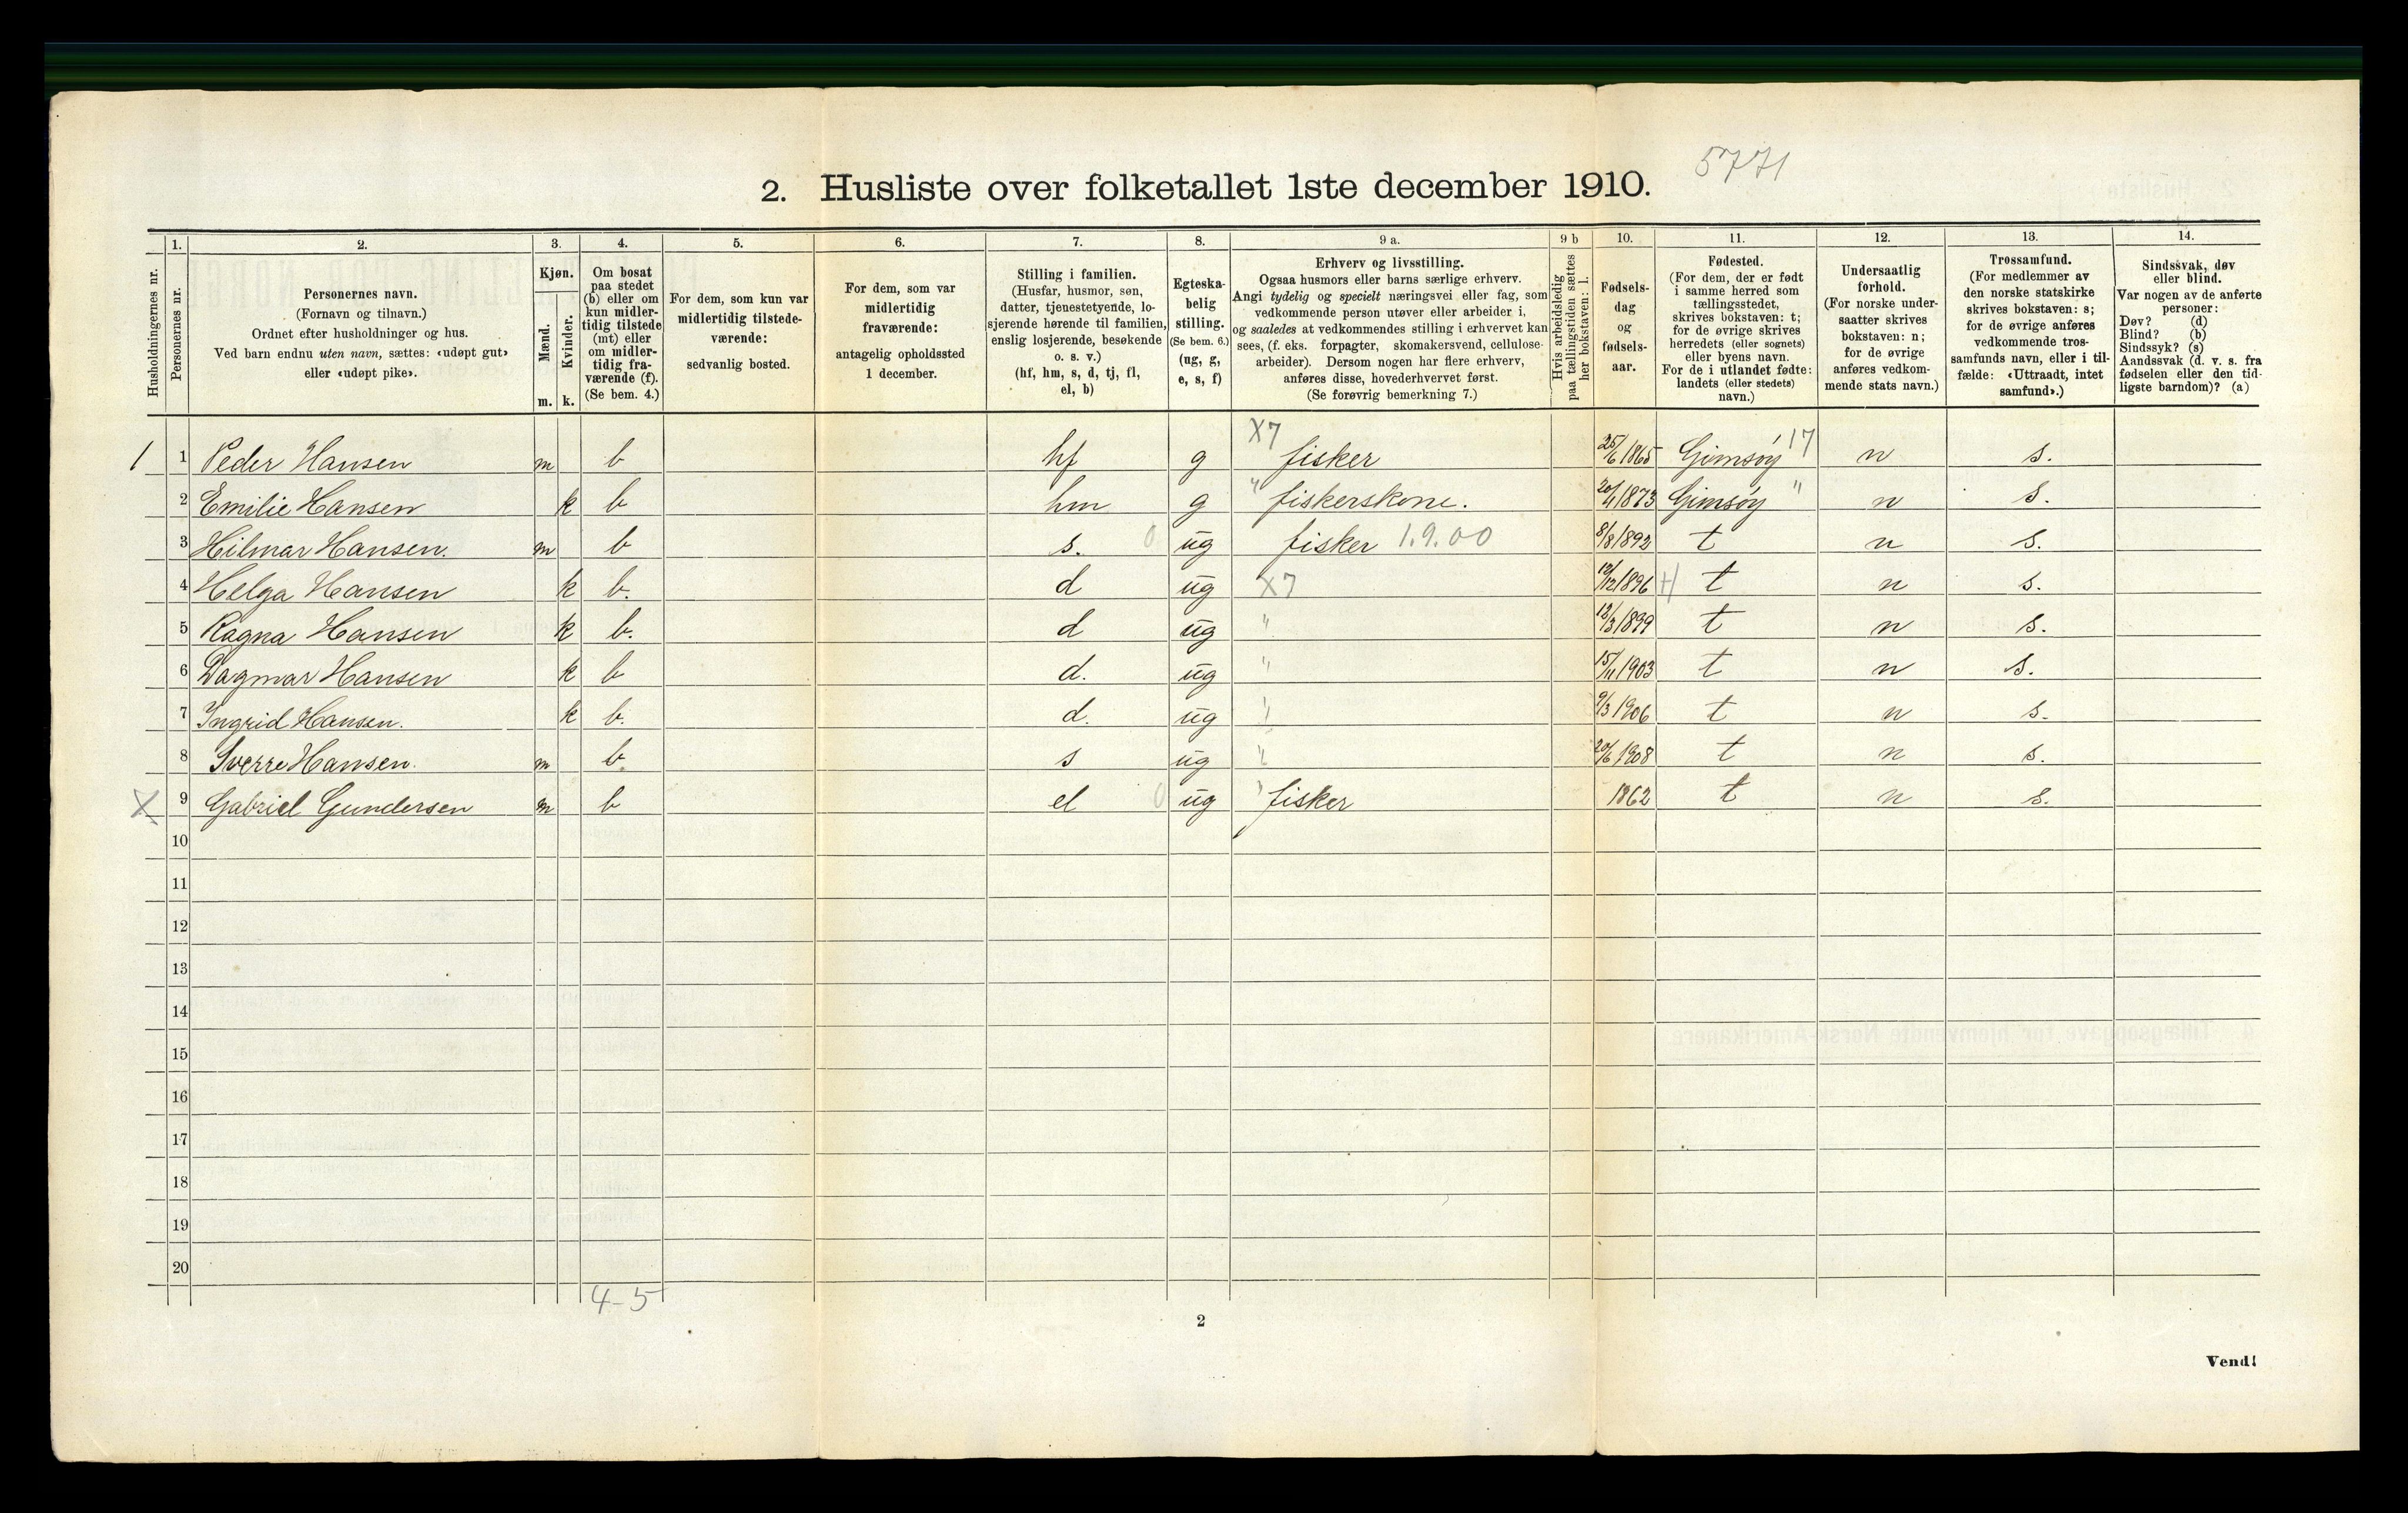 5771
2. Husliste over folketallet 1ste december 1910.
Husholdningernes nr.
1.
Personernes nr.
2.
Personernes navn.
(Fornavn og tilnavn.)
Ordnet efter husholdninger og hus.
Ved barn endnu uten navn, sættes: «udøpt gut»
eller «udøpt pike».
3.
Kjøn.
Mænd.
Kvinder.
m. k.
4.
Om bosat
paa stedet
(b) eller om
kun midler-
tidig tilstede
(mt) eller
om midler-
tidig fra-
værende (f).
(Se bem. 4.)
5.
For dem, som kun var
midlertidig tilstede-
værende:
sedvanlig bosted.
6.
For dem, som var
midlertidig
fraværende:
antagelig opholdssted
1 december.
7.
Stilling i familien.
(Husfar, husmor, søn,
datter, tjenestetyende, lo-
sjerende hørende til familien,
enslig losjerende, besøkende
o. s. v.)
(hf, hm, s, d, tj, fl,
el, b)
8.
Egteska-
belig
stilling.
(Se bem. 6.)
(ug, g,
e, s, f)
9 a.
Erhverv og livsstilling.
Ogsaa husmors eller barns særlige erhverv.
Angi tydelig og specielt næringsvei eller fag, som
vedkommende person utøver eller arbeider i,
og saaledes at vedkommendes stilling i erhvervet kan
sees, (f. eks. forpagter, skomakersvend, cellulose-
arbeider). Dersom nogen har flere erhverv,
anføres disse, hovederhvervet først.
(Se forøvrig bemerkning 7.)
9 b
Hvis arbeidsledig
paa tællingstiden sættes
her bokstaven: l.
10.
Fødsels-
dag
og
fødsels-
aar.
11.
Fødested.
(For dem, der er født
i samme herred som
tællingsstedet,
skrives bokstaven: t;
for de øvrige skrives
herredets (eller sognets)
eller byens navn.
For de i utlandet fødte:
landets (eller stedets)
navn.)
12.
Undersaatlig
forhold.
(For norske under-
saatter skrives
bokstaven: n;
for de øvrige
anføres vedkom-
mende stats navn.)
13.
Trossamfund.
(For medlemmer av
den norske statskirke
skrives bokstaven: s;
for de øvrige anføres
vedkommende tros-
samfunds navn, eller i til-
fælde: «Uttraadt, intet
samfund».)
14.
Sindssvak, døv
eller blind.
Var nogen av de anførte
personer:
Døv? (d)
Blind? (b)
Sindssyk? (s)
Aandssvak (d. v. s. fra
fødselen eller den tid-
ligste barndom)? (a)
1 1 Peder Hansen m b hf g X7 fisker 25/6 1865 Gimsöy 17 n s.
2 Emilie Hansen k b hm g " fiskerskone. 20/4 1873 Gimsöy " n s.
3 Hilmar Hansen. m b s. 0 ug fisker 1.9.00 8/8 1892 t n s.
4 Helga Hansen k b. d ug X7 12/12 1896 t n s.
5 Ragna Hansen k b. d ug " 12/3 1899 t n s.
6 Dagmar Hansen k b d. ug " 15/11 1903 t n s.
7 Ingrid Hansen. k b. d. ug " 9/3 1906 t n s.
8 Sverre Hansen. m b s ug " 20/6 1908 t n s.
X 9 Gabriel Gundersen m b el 0 ug fisker 1862 t n s.
10
11
12
13
14
15
16
17
18
19
20
4-5
2
Vend!